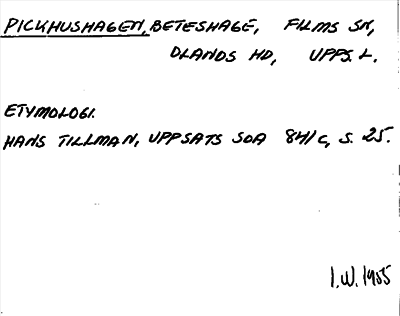 PICKHUSHAGEN, BETESHAGE, FILMS SN,
OLANDS HD, UPPS. L.
ETYMOLOGI.
HANS TILLMAN, UPPSATS SOA 841c, S. 25.
I.W. 1955